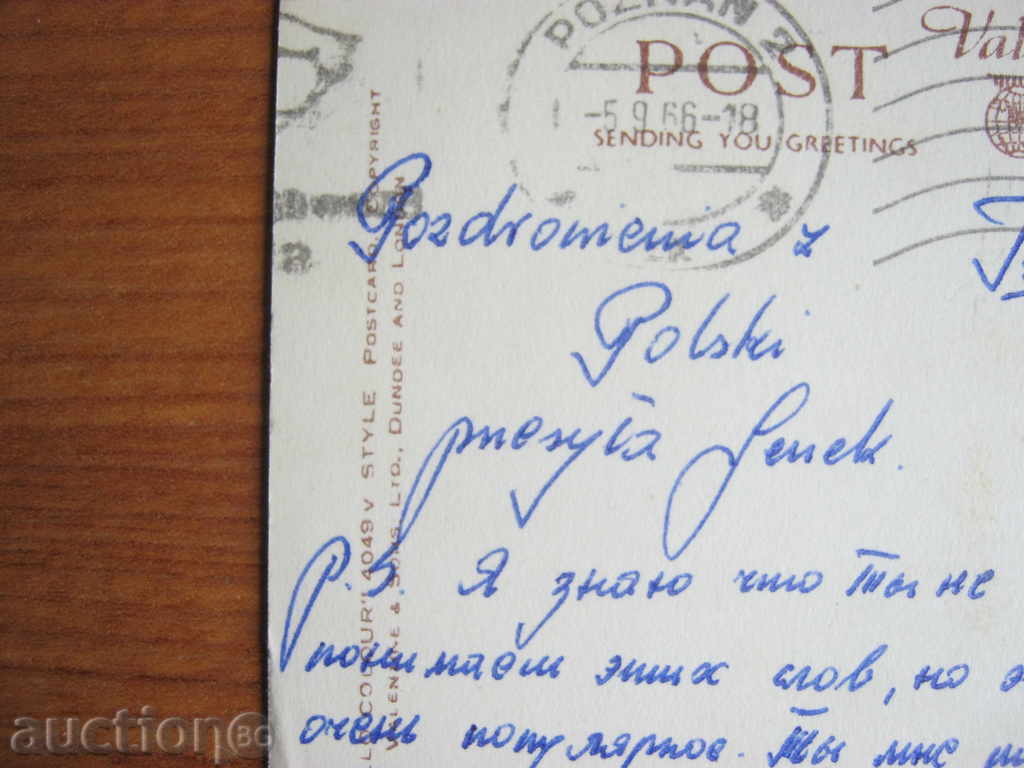 POZNAŃ 2
POST
Val
-5.9.66-18
SENDING YOU GREETINGS
Pozdrowienia z
Polski
przesyła Genek.
P.S. Я знаю что Ты не
понимаем этих слов, но э
очень популярное. Ты мне
"COLOUR" 4049V STYLE POSTCARD COPYRIGHT
VALENTINE & SONS, LTD., DUNDEE AND LONDON
auction86